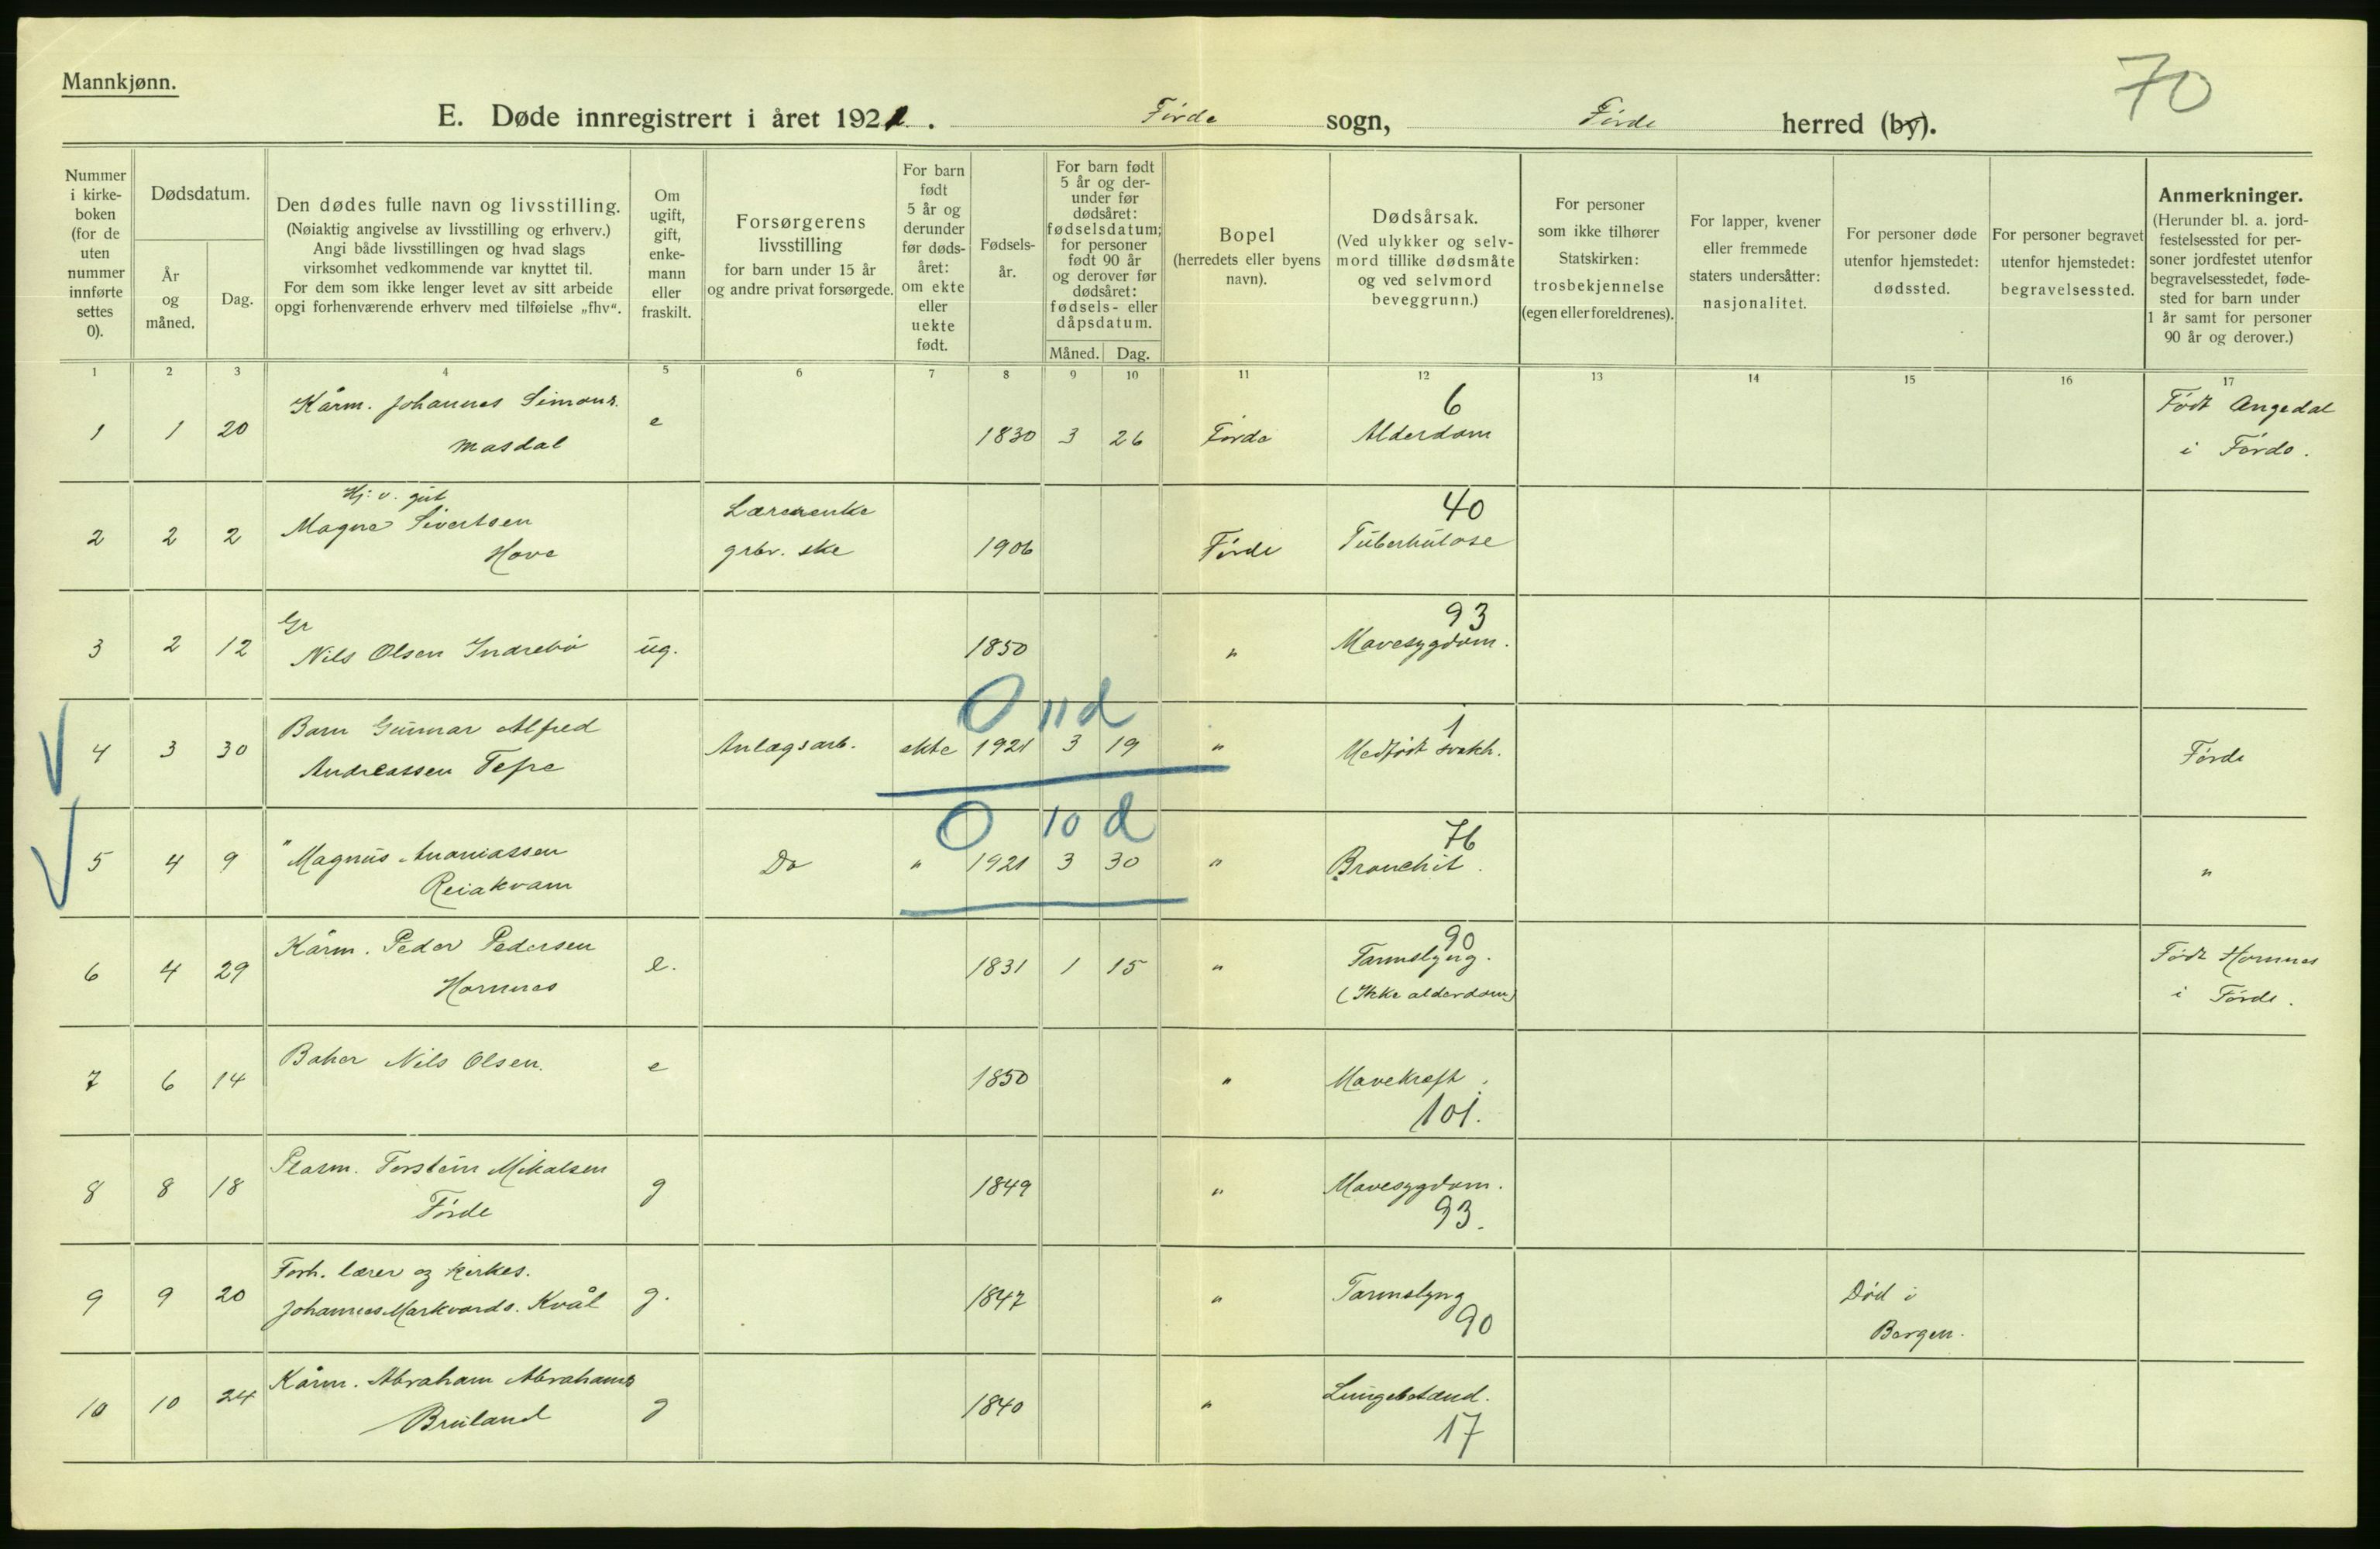 Mannkjønn.
70
E. Døde innregistrert i året 1921. Førde sogn, Førde herred (by).
Nummer i kirkeboken (for de uten nummer innførte settes 0).
Dødsdatum.
År og måned.
Dag.
Den dødes fulle navn og livsstilling.
(Nøiaktig angivelse av livsstilling og erhverv.)
Angi både livsstillingen og hvad slags
virksomhet vedkommende var knyttet til.
For dem som ikke lenger levet av sitt arbeide
opgi forhenværende erhverv med tilføielse „fhv“.
Om ugift, gift, enkemann eller fraskilt.
Forsørgerens livsstilling
for barn under 15 år
og andre privat forsørgede.
For barn født 5 år og derunder før dødsåret: om ekte eller uekte født.
Fødselsår.
For barn født 5 år og derunder før dødsåret: fødselsdatum; for personer født 90 år og derover før dødsåret: fødsels- eller dåpsdatum.
Måned. Dag.
Bopel
(herredets eller byens navn).
Dødsårsak.
(Ved ulykker og selvmord tillike dødsmåte og ved selvmord beveggrunn.)
For personer som ikke tilhører Statskirken: trosbekjennelse (egen eller foreldrenes).
For lapper, kvener eller fremmede staters undersåtter: nasjonalitet.
For personer døde utenfor hjemstedet: dødssted.
For personer begravet utenfor hjemstedet: begravelsessted.
Anmerkninger.
(Herunder bl. a. jordfestelsessted for personer jordfestet utenfor begravelsesstedet, fødested for barn under 1 år samt for personer 90 år og derover.)
1 2 3 4 5 6 7 8 9 10 11 12 13 14 15 16 17
Kårm. Johannes Simons. 6 Født Angedal
1 1 20 Masdal e 1830 3 26 Førde Alderdom i Førde.
Hj. v. gut Lærerenke 40
2 2 2 Magne Sivertsen Hove grbr. ske 1906 Førde Tuberkulose
Gr 93
3 2 12 Nils Olsen Indrebø ug. 1850 " Mavesygdom.
0 11 d
Barn Gunnar Alfred 1
4 3 30 Andreassen Tefre Anlægsarb. ekte 1921 3 19 " Medfødt svakh. Førde
0 10 d
76
5 4 9 " Magnus Ananiassen Reiakvam Do " 1921 3 30 " Bronchit. "
Kårm. Peder Pedersen 90 Født Hornnes
6 4 29 Hornnes e. 1831 1 15 " Tarmslyng. i Førde.
(Ikke alderdom)
7 6 14 Baker Nils Olsen. e 1850 " Mavekræft.
101.
8 8 18 Plasm. Torstein Mikalsen Førde g 1849 " Mavesygdom.
93.
Forh. lærer og kirkes.
9 9 20 Johannes Markvards. Kvål g. 1847 " Tarmslyng Død i
90 Bergen.
Kårm. Abraham Abrahams
10 10 24 Bruland g 1840 " Lungebetænd.
17